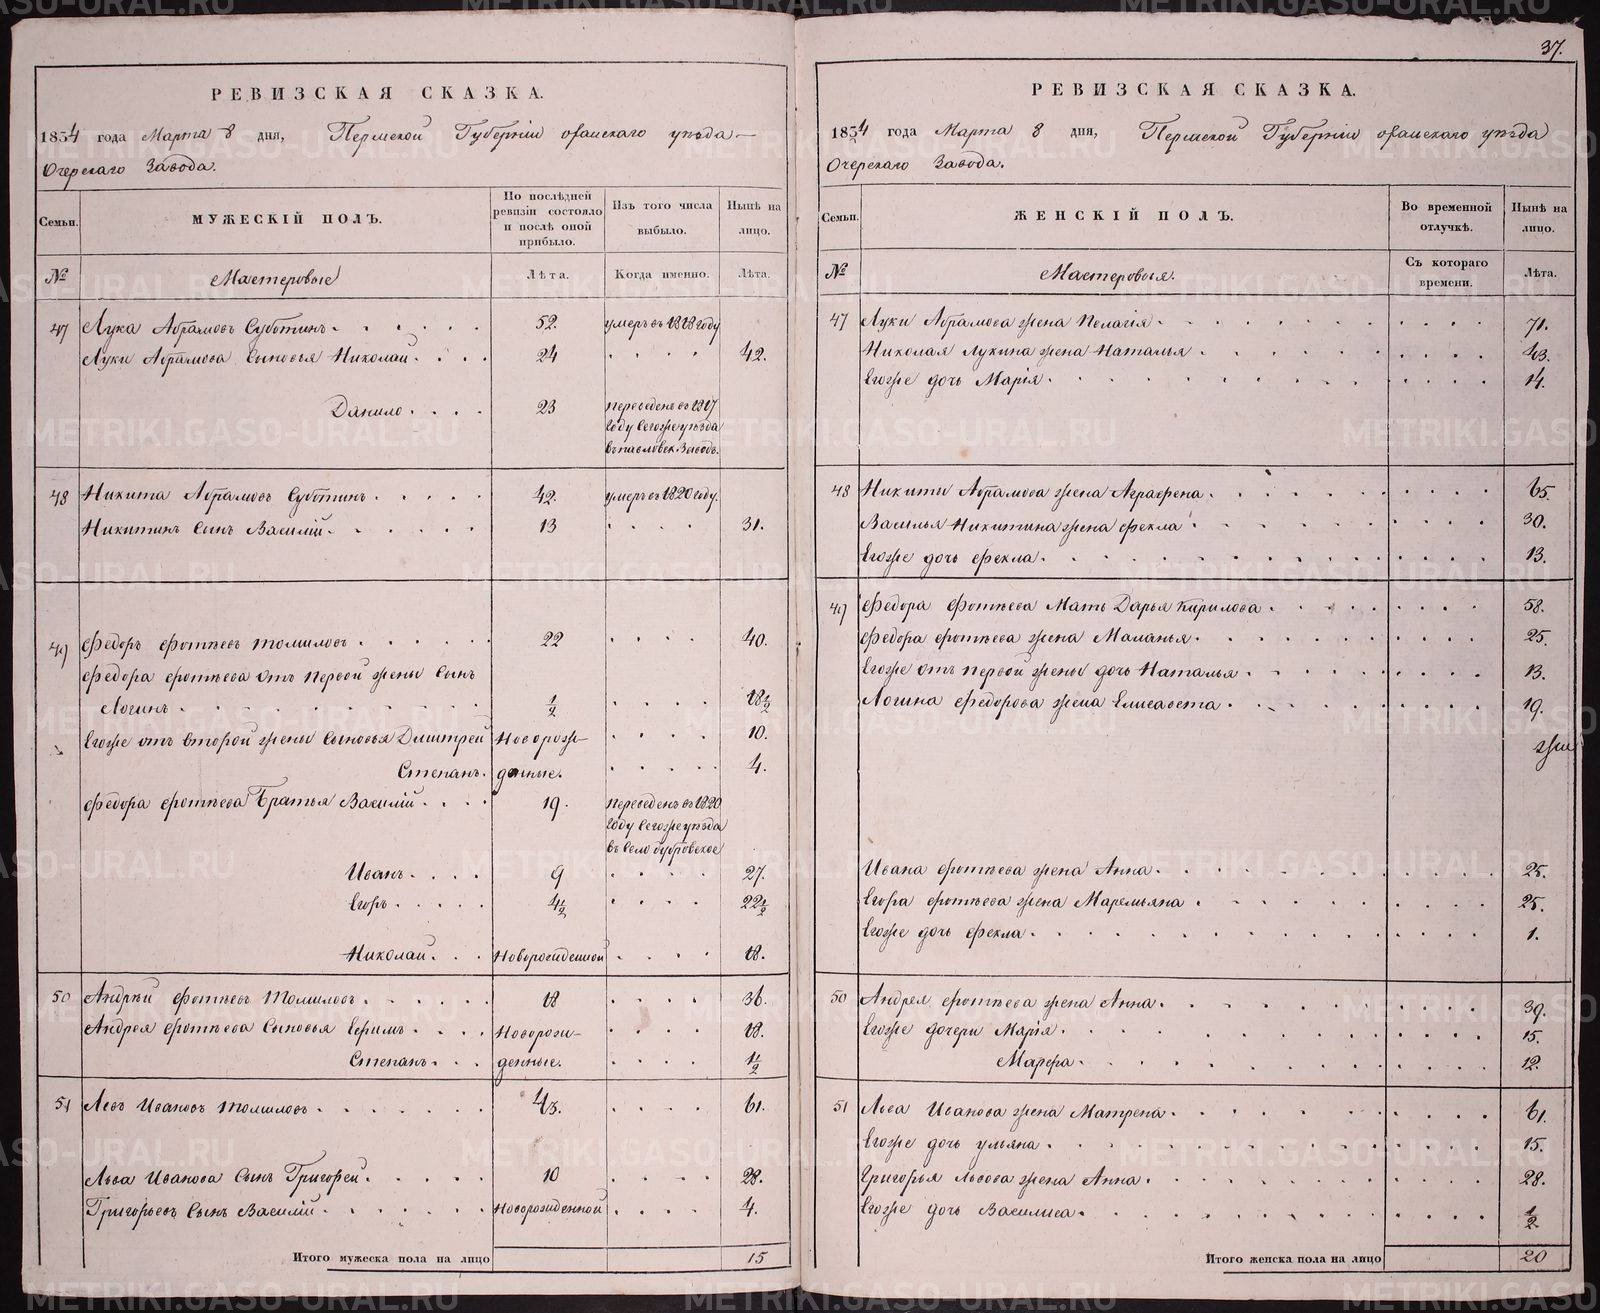 37.
РЕВИЗСКАЯ СКАЗКА.
1834 года Марта 8 дня, Пермской Губернiи оханскаго уѣзда
Очерскаго Завода.
Семьи. МУЖЕСКIЙ ПОЛЪ. По послѣдней ревизiи состояло и послѣ оной прибыло. Изъ того числа выбыло. Нынѣ на лицо.
№ Мастеровые Лѣта. Когда именно. Лѣта.
47 Лука Абрамовъ Суботинъ 52. умеръ въ 1828 году
Луки Абрамова сыновья Николай 24 42.
Данило 23 переведенъ въ 1817
году сегоже уѣзда
въ павловск. Заводъ.
48 Никита Абрамовъ Суботинъ 42. умеръ въ 1820 году.
Никитинъ сынъ Василiй 13 31.
49 Федоръ Фотѣевъ Томиловъ 22 40.
Федора Фотѣева отъ первой жены сынъ
Логинъ 1/2 18 1/2
Егоже отъ второй жены сыновья Дмитрей Новорож- 10.
Степанъ. денные. 4.
Федора Фотѣева Братья Василiй 19. переведенъ въ 1820
году сегоже уѣзда
въ село дубровское
Иванъ 9 27.
Егоръ 4 1/2 22 1/2
Николай Новорожденной 18.
50 Андрѣй Фотѣевъ Томиловъ 18 36.
Андрея Фотѣева Сыновья Ефимъ Новорож- 18.
Степанъ денные. 1/2
51 Левъ Ивановъ Томиловъ 43. 61.
Льва Иванова сынъ Григорей 10 28.
Григорьевъ сынъ Василiй Новорожденной 4.
Итого мужеска пола на лицо 15
РЕВИЗСКАЯ СКАЗКА.
1834 года Марта 8 дня, Пермской Губернiи оханскаго уѣзда
Очерскаго Завода.
Семьи. ЖЕНСКIЙ ПОЛЪ. Во временной отлучкѣ. Нынѣ на лицо.
№ Мастеровыя. Съ котораго времени. Лѣта.
47 Луки Абрамова жена Пелагiя 71.
Николая Лукина жена Наталья 43.
Егоже дочь Марiя 14.
48 Никиты Абрамова жена Аграфена 65.
Василья Никитина жена Фекла 30.
Егоже дочь Фекла 13.
49 Федора Фотѣева Мать Дарья Кирилова 58.
Федора Фотѣева жена Маланья 25.
Егоже отъ первой жены дочь Наталья 13.
Логина Федорова жена Елисавета 19.
Ивана Фотѣева жена Анна 25.
Егора Фотѣева жена Маремьяна 25.
Егоже дочь Фекла 1.
50 Андрея Фотѣева жена Анна 39.
Егоже дочери Марiя 15.
Марфа 12.
51 Льва Иванова жена Матрена 61.
Егоже дочь ульяна 15.
Григорья Львова жена Анна 28.
Егоже дочь Василиса 1/2
Итого женска пола на лицо 20
METRIKI.GASO-URAL.RU